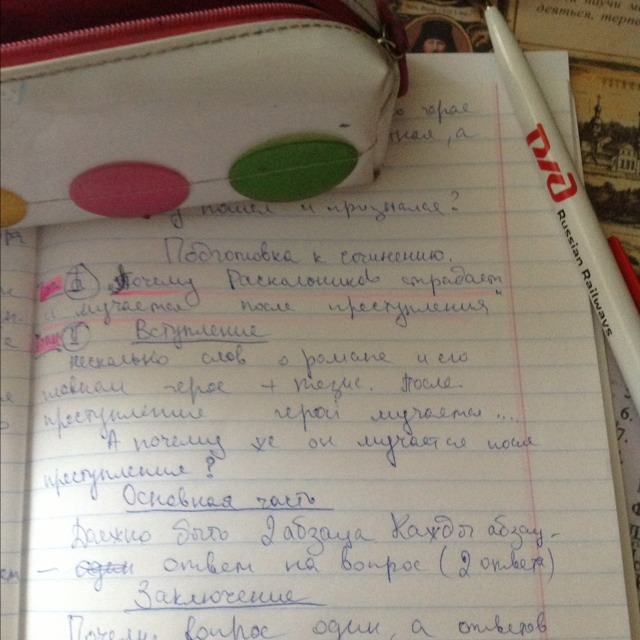 герое
пошёл и признался?
Подготовка к сочинению.
II "Почему Раскольников страдает
и мучается после преступления"
II Вступление
несколько слов о романе и его
главном герое + тезис. После
преступление герой мучается...
А почему же он мучается после
преступление?
Основная часть
Должно быть 2 абзаца Кажды абзац-
- один ответ на вопрос (2 ответа)
Заключение
Почему вопрос один, а ответов
РЖД
Russian Railways